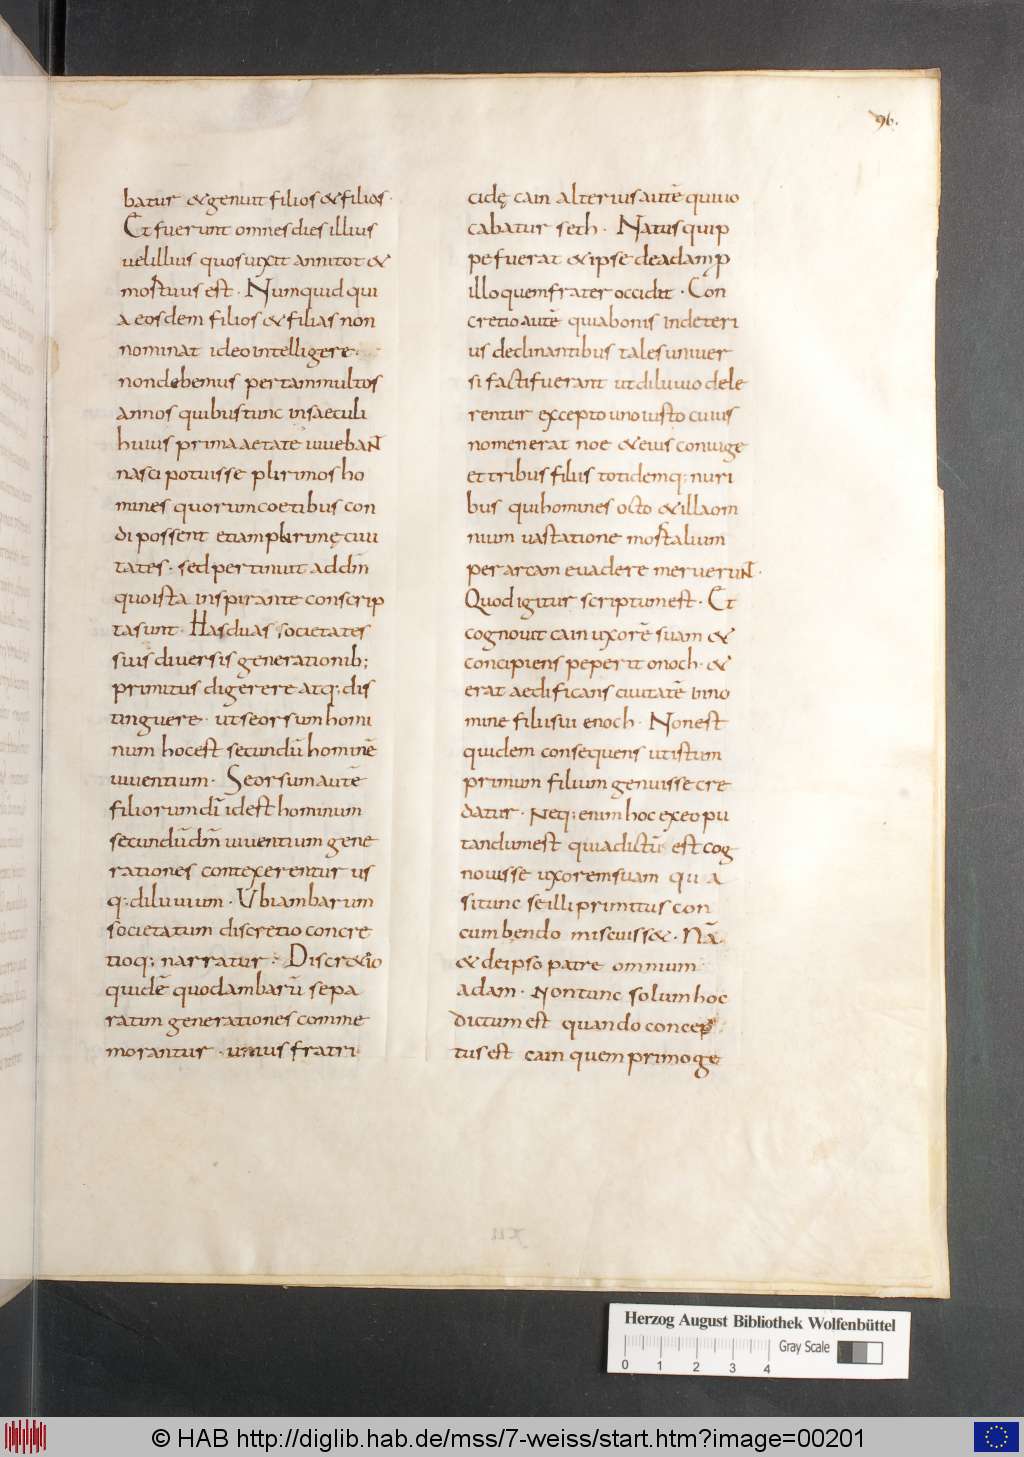 96.
batur & genuit filios & filias.
Et fuerunt omnes dies illius
vel illius quos vixit anni tot &
mortuus est. Numquid qui
a eosdem filios & filias non
nominat ideo intelligere
non debemus per tam multos
annos quibus tunc in saeculi
huius prima aetate vivebant
nasci potuisse plurimos ho
mines quorum coetibus con
di possent etiam plurimę civi
tates. sed pertinuit ad dm̄
quo ista inspirante conscrip
ta sunt. Has duas societates
suis diversis generationib;
primitus digerere atq; dis
tinguere. ut seorsum homi
num hoc est secundū hominē
viventium. Seorsum autē
filiorum dī id est hominum
secundū dm̄ viventium gene
rationes contexerentur us
q; diluvium. Ubi ambarum
societatum discretio concre
tioq; narratur. Discretio
quidē quod ambarū sepa
ratim generationes comme
morantur. unius fratri
cidę cain alterius autē qui vo
cabatur seth. Natus quip
pe fuerat & ipse de adam p
illo quem frater occidit. Con
cretio autē quia bonis in deteri
us declinantibus tales univer
si facti fuerant ut diluvio dele
rentur excepto uno iusto cuius
nomen erat noe & eius coniuge
et tribus filiis totidemq; nuri
bus qui homines octo & illa om
nium vastatione mortalium
per arcam evadere meruerunt.
Quod igitur scriptum est. Et
cognovit cain uxorē suam &
concipiens peperit onoch. &
erat aedificans civitatē in no
mine filii sui enoch. Non est
quidem consequens ut istum
primum filium genuisse cre
datur. Neq; enim hoc ex eo pu
tandum est quia dictū est cog
novisse uxorem suam qua
si tunc se illi primitus con
cumbendo miscuiss&. Nā
& de ipso patre omnium
adam. Non tunc solum hoc
dictum est quando concep
tus est cain quem primoge
XII
Herzog August Bibliothek Wolfenbüttel
Gray Scale
0 1 2 3 4
© HAB http://diglib.hab.de/mss/7-weiss/start.htm?image=00201